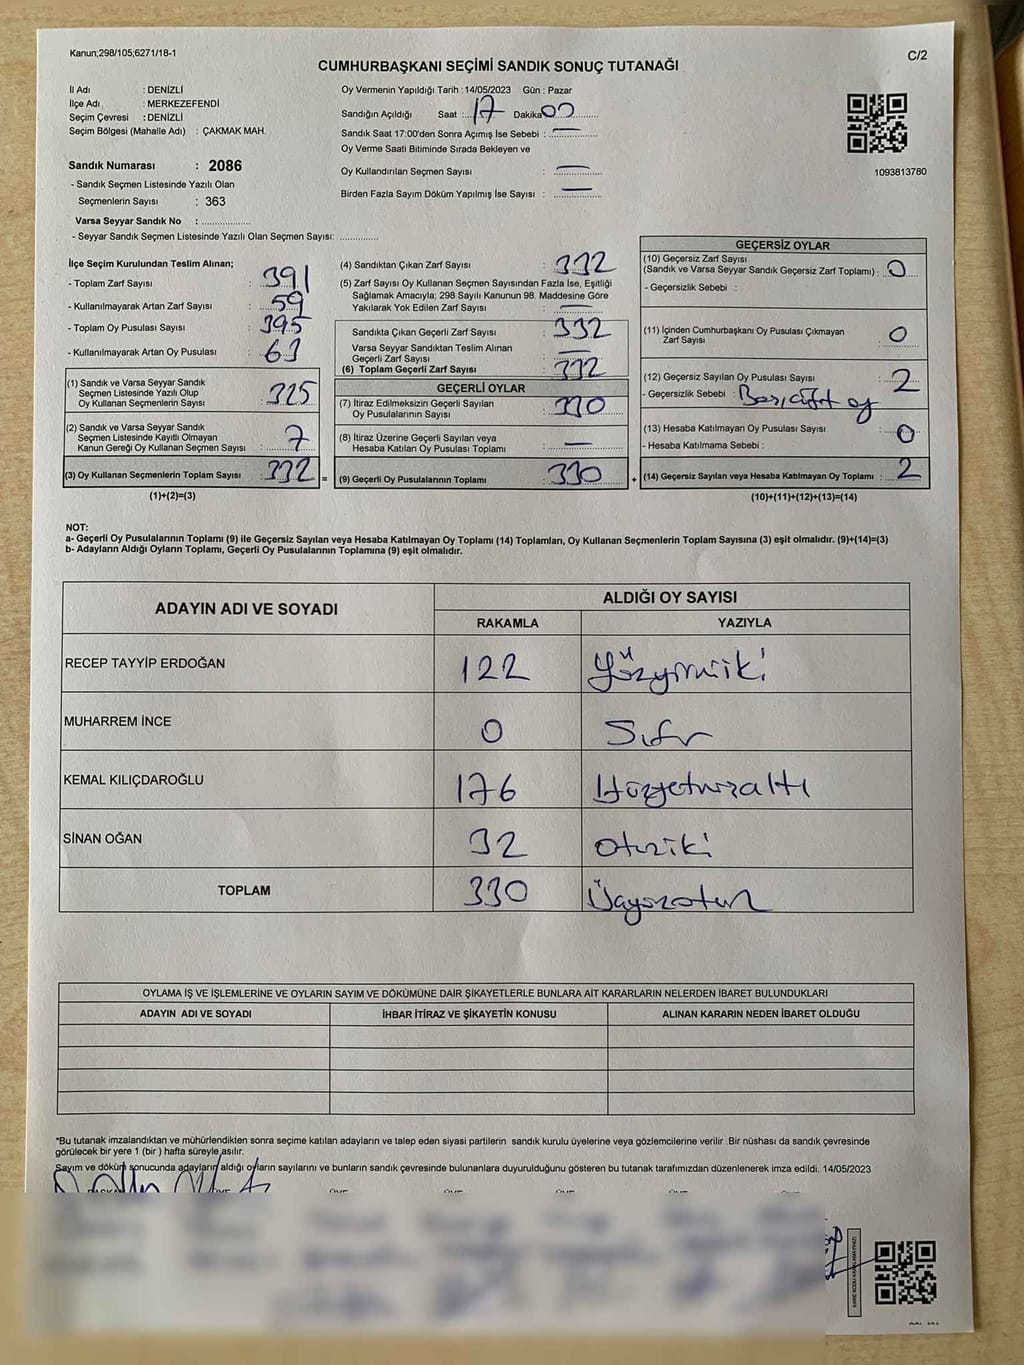 Kanun;298/105;6271/18-1
C/2
CUMHURBAŞKANI SEÇİMİ SANDIK SONUÇ TUTANAĞI
İl Adı : DENİZLİ
İlçe Adı : MERKEZEFENDİ
Seçim Çevresi : DENİZLİ
Seçim Bölgesi (Mahalle Adı) : ÇAKMAK MAH.
Sandık Numarası : 2086
- Sandık Seçmen Listesinde Yazılı Olan
Seçmenlerin Sayısı : 363
Varsa Seyyar Sandık No : ..................
- Seyyar Sandık Seçmen Listesinde Yazılı Olan Seçmen Sayısı: ..............
Oy Vermenin Yapıldığı Tarih :14/05/2023 Gün : Pazar
Sandığın Açıldığı Saat :17 Dakika 00
Sandık Saat 17:00'den Sonra Açımış İse Sebebi : —
Oy Verme Saati Bitiminde Sırada Bekleyen ve
Oy Kullandırılan Seçmen Sayısı : —
Birden Fazla Sayım Döküm Yapılmış İse Sayısı : —
1093813780
İlçe Seçim Kurulundan Teslim Alınan;
- Toplam Zarf Sayısı : 391
- Kullanılmayarak Artan Zarf Sayısı : 59
- Toplam Oy Pusulası Sayısı : 395
- Kullanılmayarak Artan Oy Pusulası : 63
(1) Sandık ve Varsa Seyyar Sandık
Seçmen Listesinde Yazılı Olup
Oy Kullanan Seçmenlerin Sayısı : 325
(2) Sandık ve Varsa Seyyar Sandık
Seçmen Listesinde Kayıtlı Olmayan
Kanun Gereği Oy Kullanan Seçmen Sayısı : 7
(3) Oy Kullanan Seçmenlerin Toplam Sayısı : 332 =
(1)+(2)=(3)
(4) Sandıktan Çıkan Zarf Sayısı : 332
(5) Zarf Sayısı Oy Kullanan Seçmen Sayısından Fazla İse, Eşitliği
Sağlamak Amacıyla; 298 Sayılı Kanunun 98. Maddesine Göre
Yakılarak Yok Edilen Zarf Sayısı : —
Sandıkta Çıkan Geçerli Zarf Sayısı : 332
Varsa Seyyar Sandıktan Teslim Alınan
Geçerli Zarf Sayısı : —
(6) Toplam Geçerli Zarf Sayısı : 332
GEÇERLİ OYLAR
(7) İtiraz Edilmeksizin Geçerli Sayılan
Oy Pusulalarının Sayısı : 330
(8) İtiraz Üzerine Geçerli Sayılan veya
Hesaba Katılan Oy Pusulası Toplamı : —
(9) Geçerli Oy Pusulalarının Toplamı : 330 +
GEÇERSİZ OYLAR
(10) Geçersiz Zarf Sayısı
(Sandık ve Varsa Seyyar Sandık Geçersiz Zarf Toplamı) : 0
- Geçersizlik Sebebi :
(11) İçinden Cumhurbaşkanı Oy Pusulası Çıkmayan
Zarf Sayısı : 0
(12) Geçersiz Sayılan Oy Pusulası Sayısı : 2
- Geçersizlik Sebebi : oy
(13) Hesaba Katılmayan Oy Pusulası Sayısı : 0
- Hesaba Katılmama Sebebi :
(14) Geçersiz Sayılan veya Hesaba Katılmayan Oy Toplamı : 2
(10)+(11)+(12)+(13)=(14)
NOT:
a- Geçerli Oy Pusulalarının Toplamı (9) ile Geçersiz Sayılan veya Hesaba Katılmayan Oy Toplamı (14) Toplamları, Oy Kullanan Seçmenlerin Toplam Sayısına (3) eşit olmalıdır. (9)+(14)=(3)
b- Adayların Aldığı Oyların Toplamı, Geçerli Oy Pusulalarının Toplamına (9) eşit olmalıdır.
ADAYIN ADI VE SOYADI
ALDIĞI OY SAYISI
RAKAMLA YAZIYLA
RECEP TAYYİP ERDOĞAN 122 Yüzyirmiiki
MUHARREM İNCE 0 Sıfır
KEMAL KILIÇDAROĞLU 176 Yüzyetmişaltı
SİNAN OĞAN 32 Otuziki
TOPLAM 330 Üçyüzotuz
OYLAMA İŞ VE İŞLEMLERİNE VE OYLARIN SAYIM VE DÖKÜMÜNE DAİR ŞİKAYETLERLE BUNLARA AİT KARARLARIN NELERDEN İBARET BULUNDUKLARI
ADAYIN ADI VE SOYADI İHBAR İTİRAZ VE ŞİKAYETİN KONUSU ALINAN KARARIN NEDEN İBARET OLDUĞU
*Bu tutanak imzalandıktan ve mühürlendikten sonra seçime katılan adayların ve talep eden siyasi partilerin sandık kurulu üyelerine veya gözlemcilerine verilir .Bir nüshası da sandık çevresinde
görülecek bir yere 1 (bir ) hafta süreyle asılır.
Sayım ve döküm sonucunda adayların aldığı oyların sayılarını ve bunların sandık çevresinde bulunanlara duyurulduğunu gösteren bu tutanak tarafımızdan düzenlenerek imza edildi. 14/05/2023